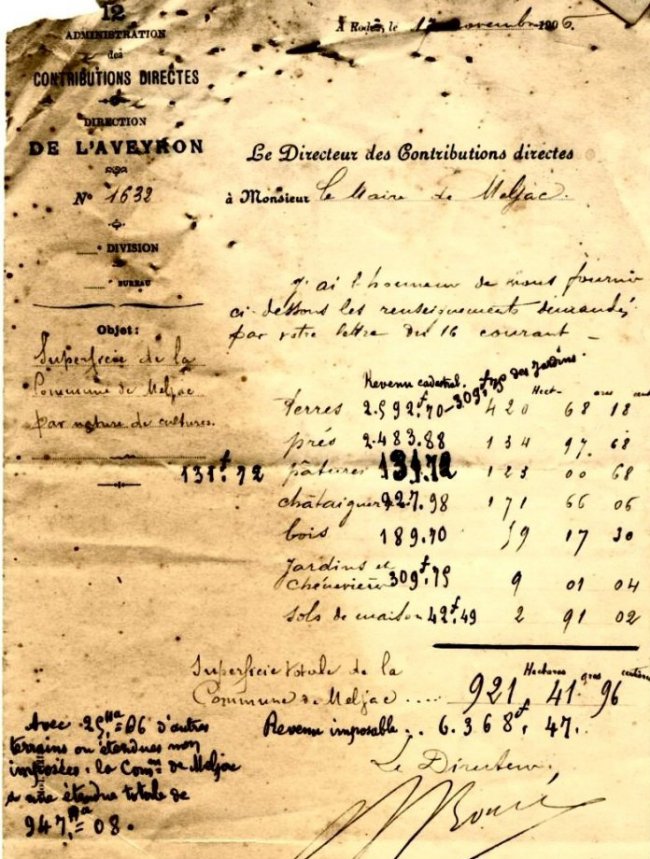 12
ADMINISTRATION
des
CONTRIBUTIONS DIRECTES
DIRECTION
DE L'AVEYRON
N° 1632
DIVISION
BUREAU
Objet:
Superficie de la
Commune de Meljac
par nature de cultures.
A Rodez, le 17 novembre 1906.
Le Directeur des Contributions directes
à Monsieur le Maire de Meljac.
J'ai l'honneur de vous fournir
ci-dessous les renseignements demandés
par votre lettre du 16 courant -
Revenu cadastral. 309f,75 des jardins. Hect. ares cent
terres 2.592f.70 420 68 18
prés 2.483.88 134 97 68
131f.72 pâtures 131.72 123 00 68
châtaigner 927.98 171 66 06
bois 189.70 59 17 30
Jardins et
chènevière 309f.75 9 01 04
sols de maison 42f.49 2 91 02
Superficie totale de la Hectares ares
Commune de Meljac .... 921 41 96
Revenu imposable .. 6.368f, 47.
Le Directeur,
Avec 25Ha=06 d'autres
terrains ou étendues non
imposées, la Comne de Meljac
a une étendue totale de
947Ha=08.